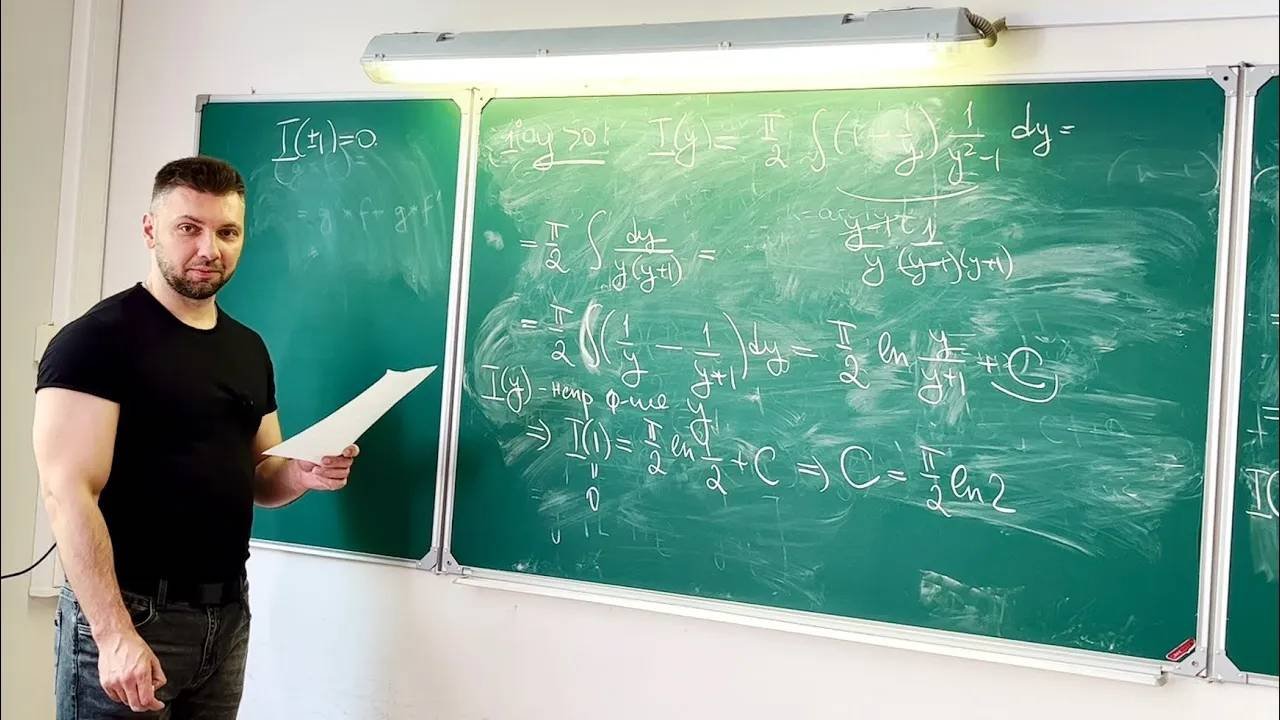 I(±1)=0.
= g * f + g * f
y>0: I(y) = π/2 ∫(1 - 1/y) 1/(y²-1) dy =
= π/2 ∫ dy/(y(y+1)) =
(y-1)/y · 1/((y-1)(y+1))
= π/2 ∫(1/y - 1/(y+1))dy = π/2 ln y/(y+1) + C
I(y) - непр ф-ия y
⇒ I(1) = π/2 ln 1/2 + C ⇒ C = π/2 ln2
"
0